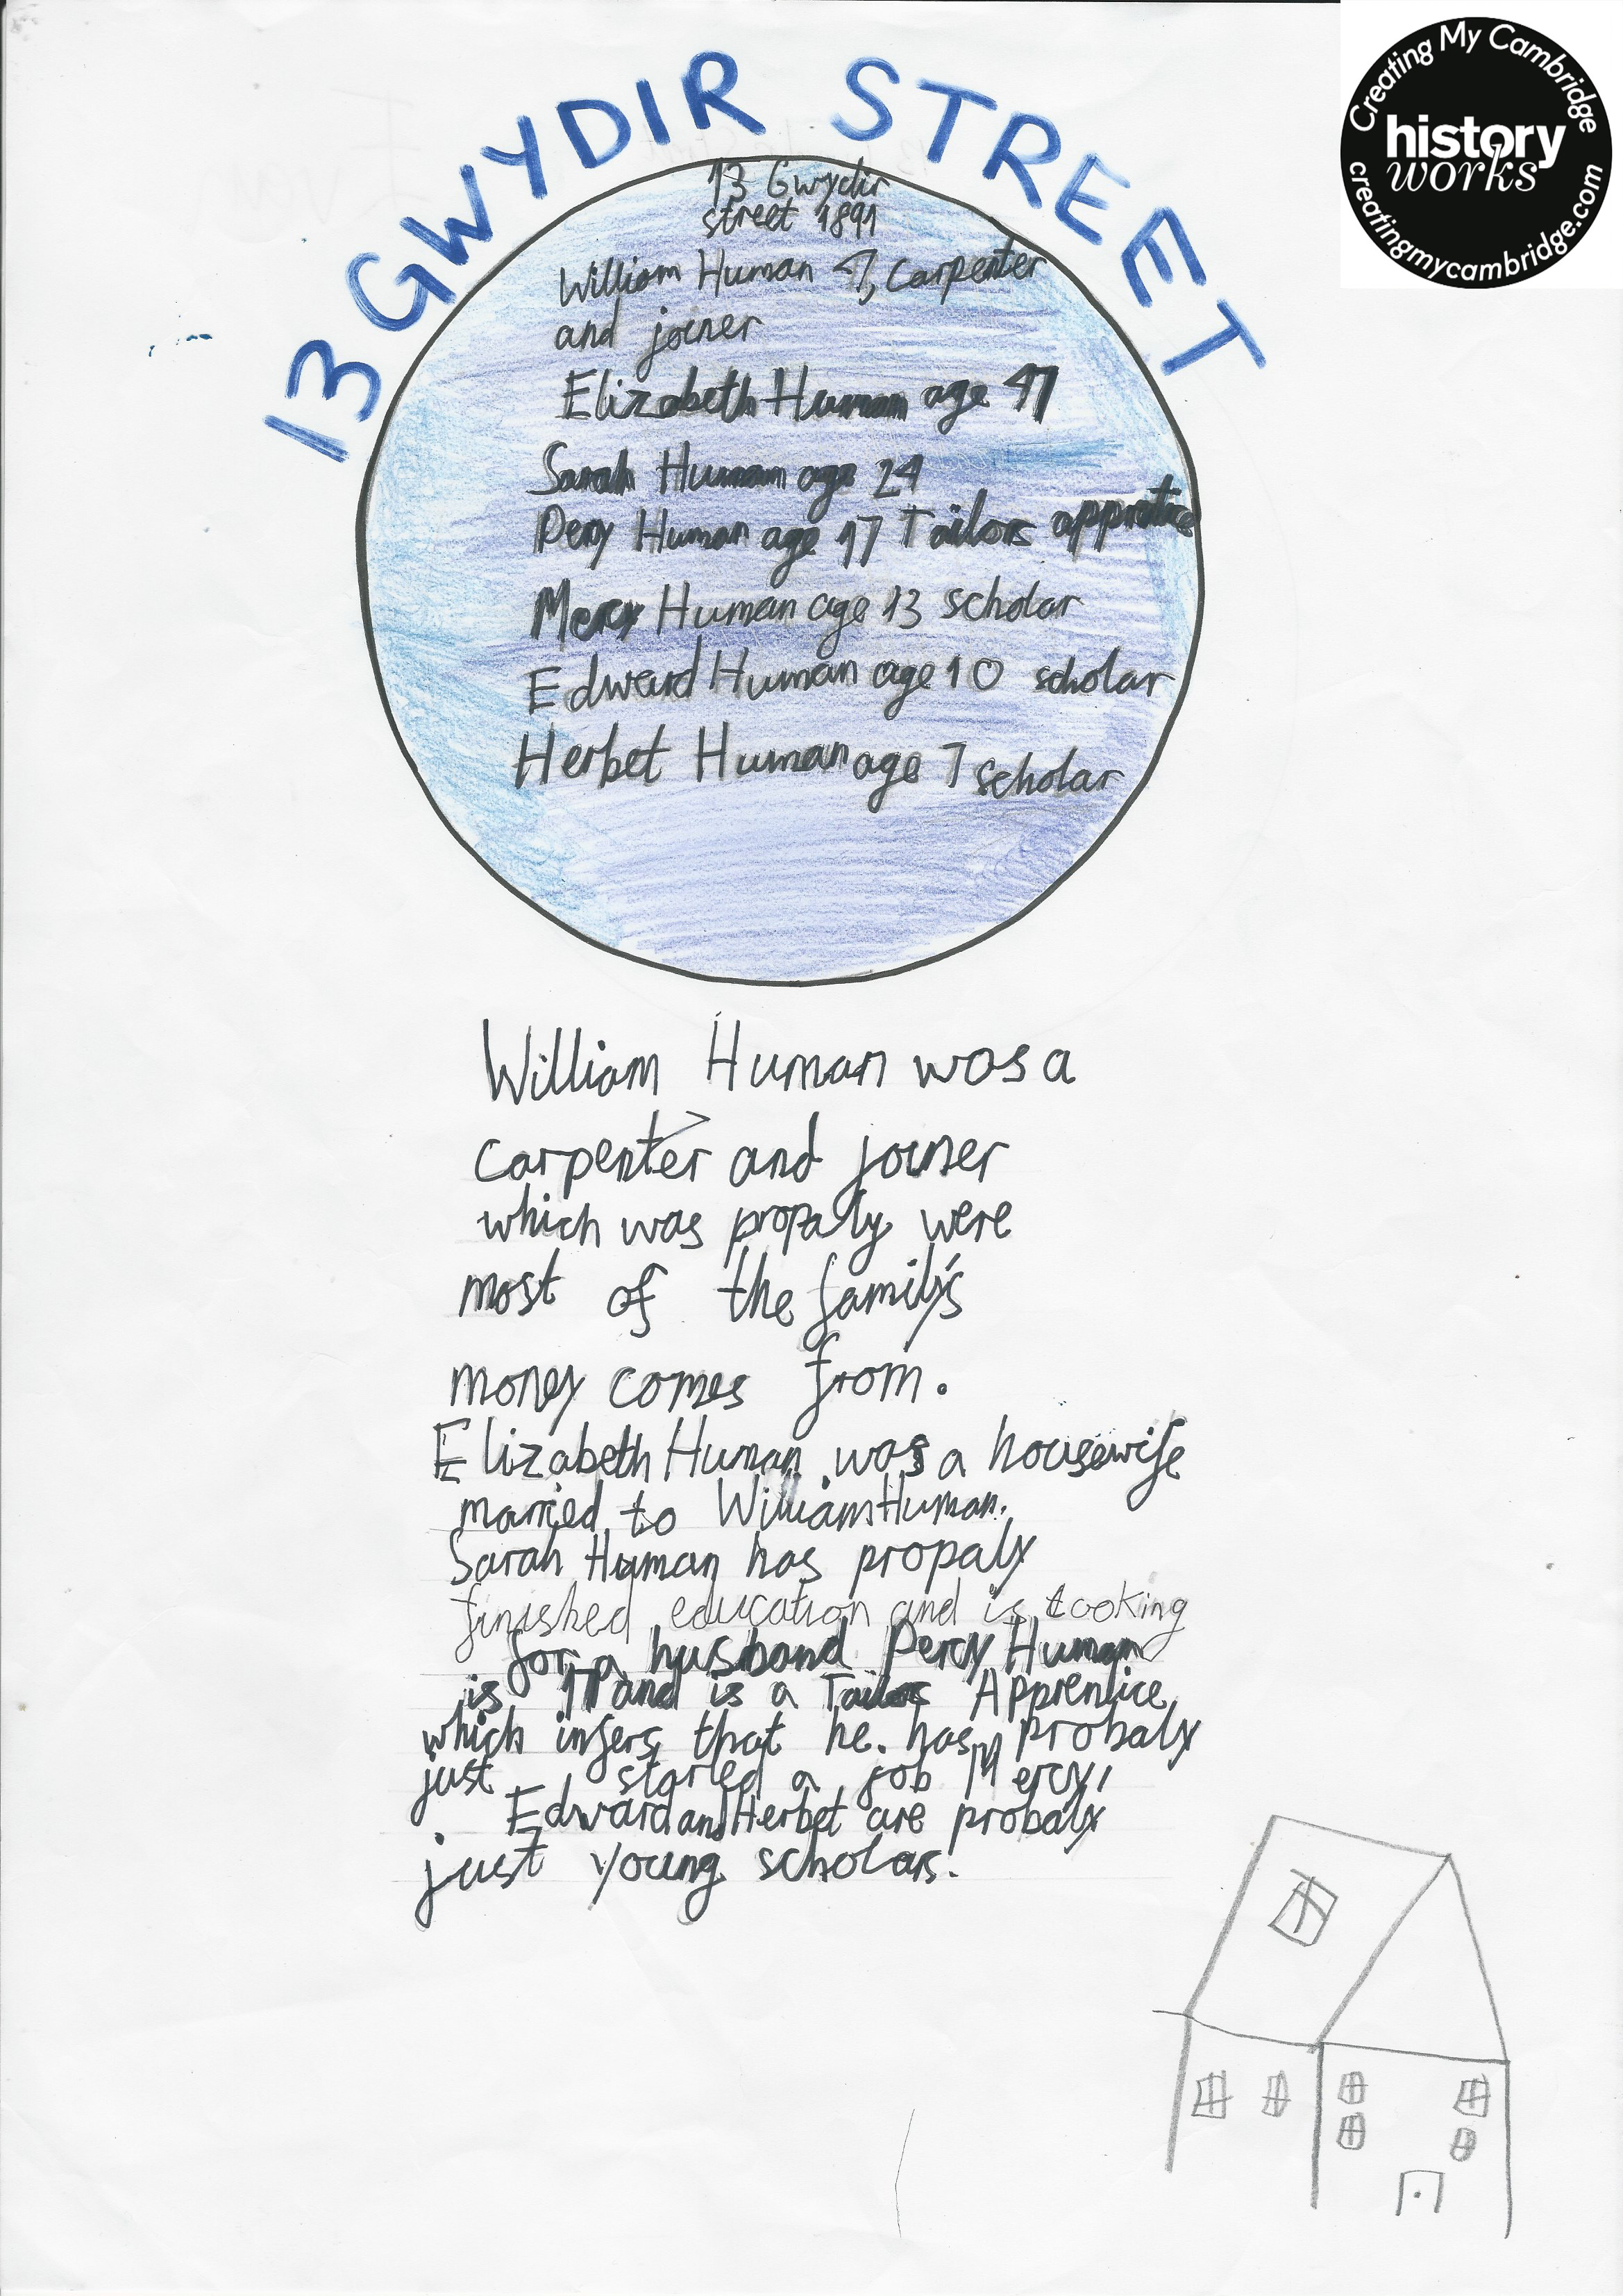 Creating My Cambridge
history
works
creatingmycambridge.com
13 GWYDIR STREET
13 Gwydir
street 1891
William Human 47, Carpenter
and joiner
Elizabeth Human age 47
Sarah Human age 24
Percy Human age 17 Tailors apprentice
Mercy Human age 13 scholar
Edward Human age 10 scholar
Herbet Human age 7 scholar
William Human was a
carpenter and joiner
which was propaly were
most of the family's
money comes from.
Elizabeth Human was a housewife
married to William Human.
Sarah Human has propaly
finished education and is looking
for a husband Percy Human
is 17 and is a Tailos Apprentice
which infers that he has probaly
just started a job Mercy,
Edward and Herbet are probaly
just young scholars.